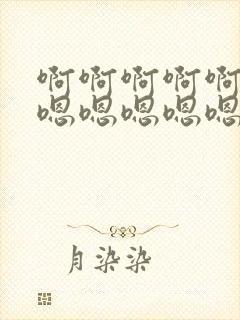 啊啊啊啊啊
嗯嗯嗯嗯嗯
月染染